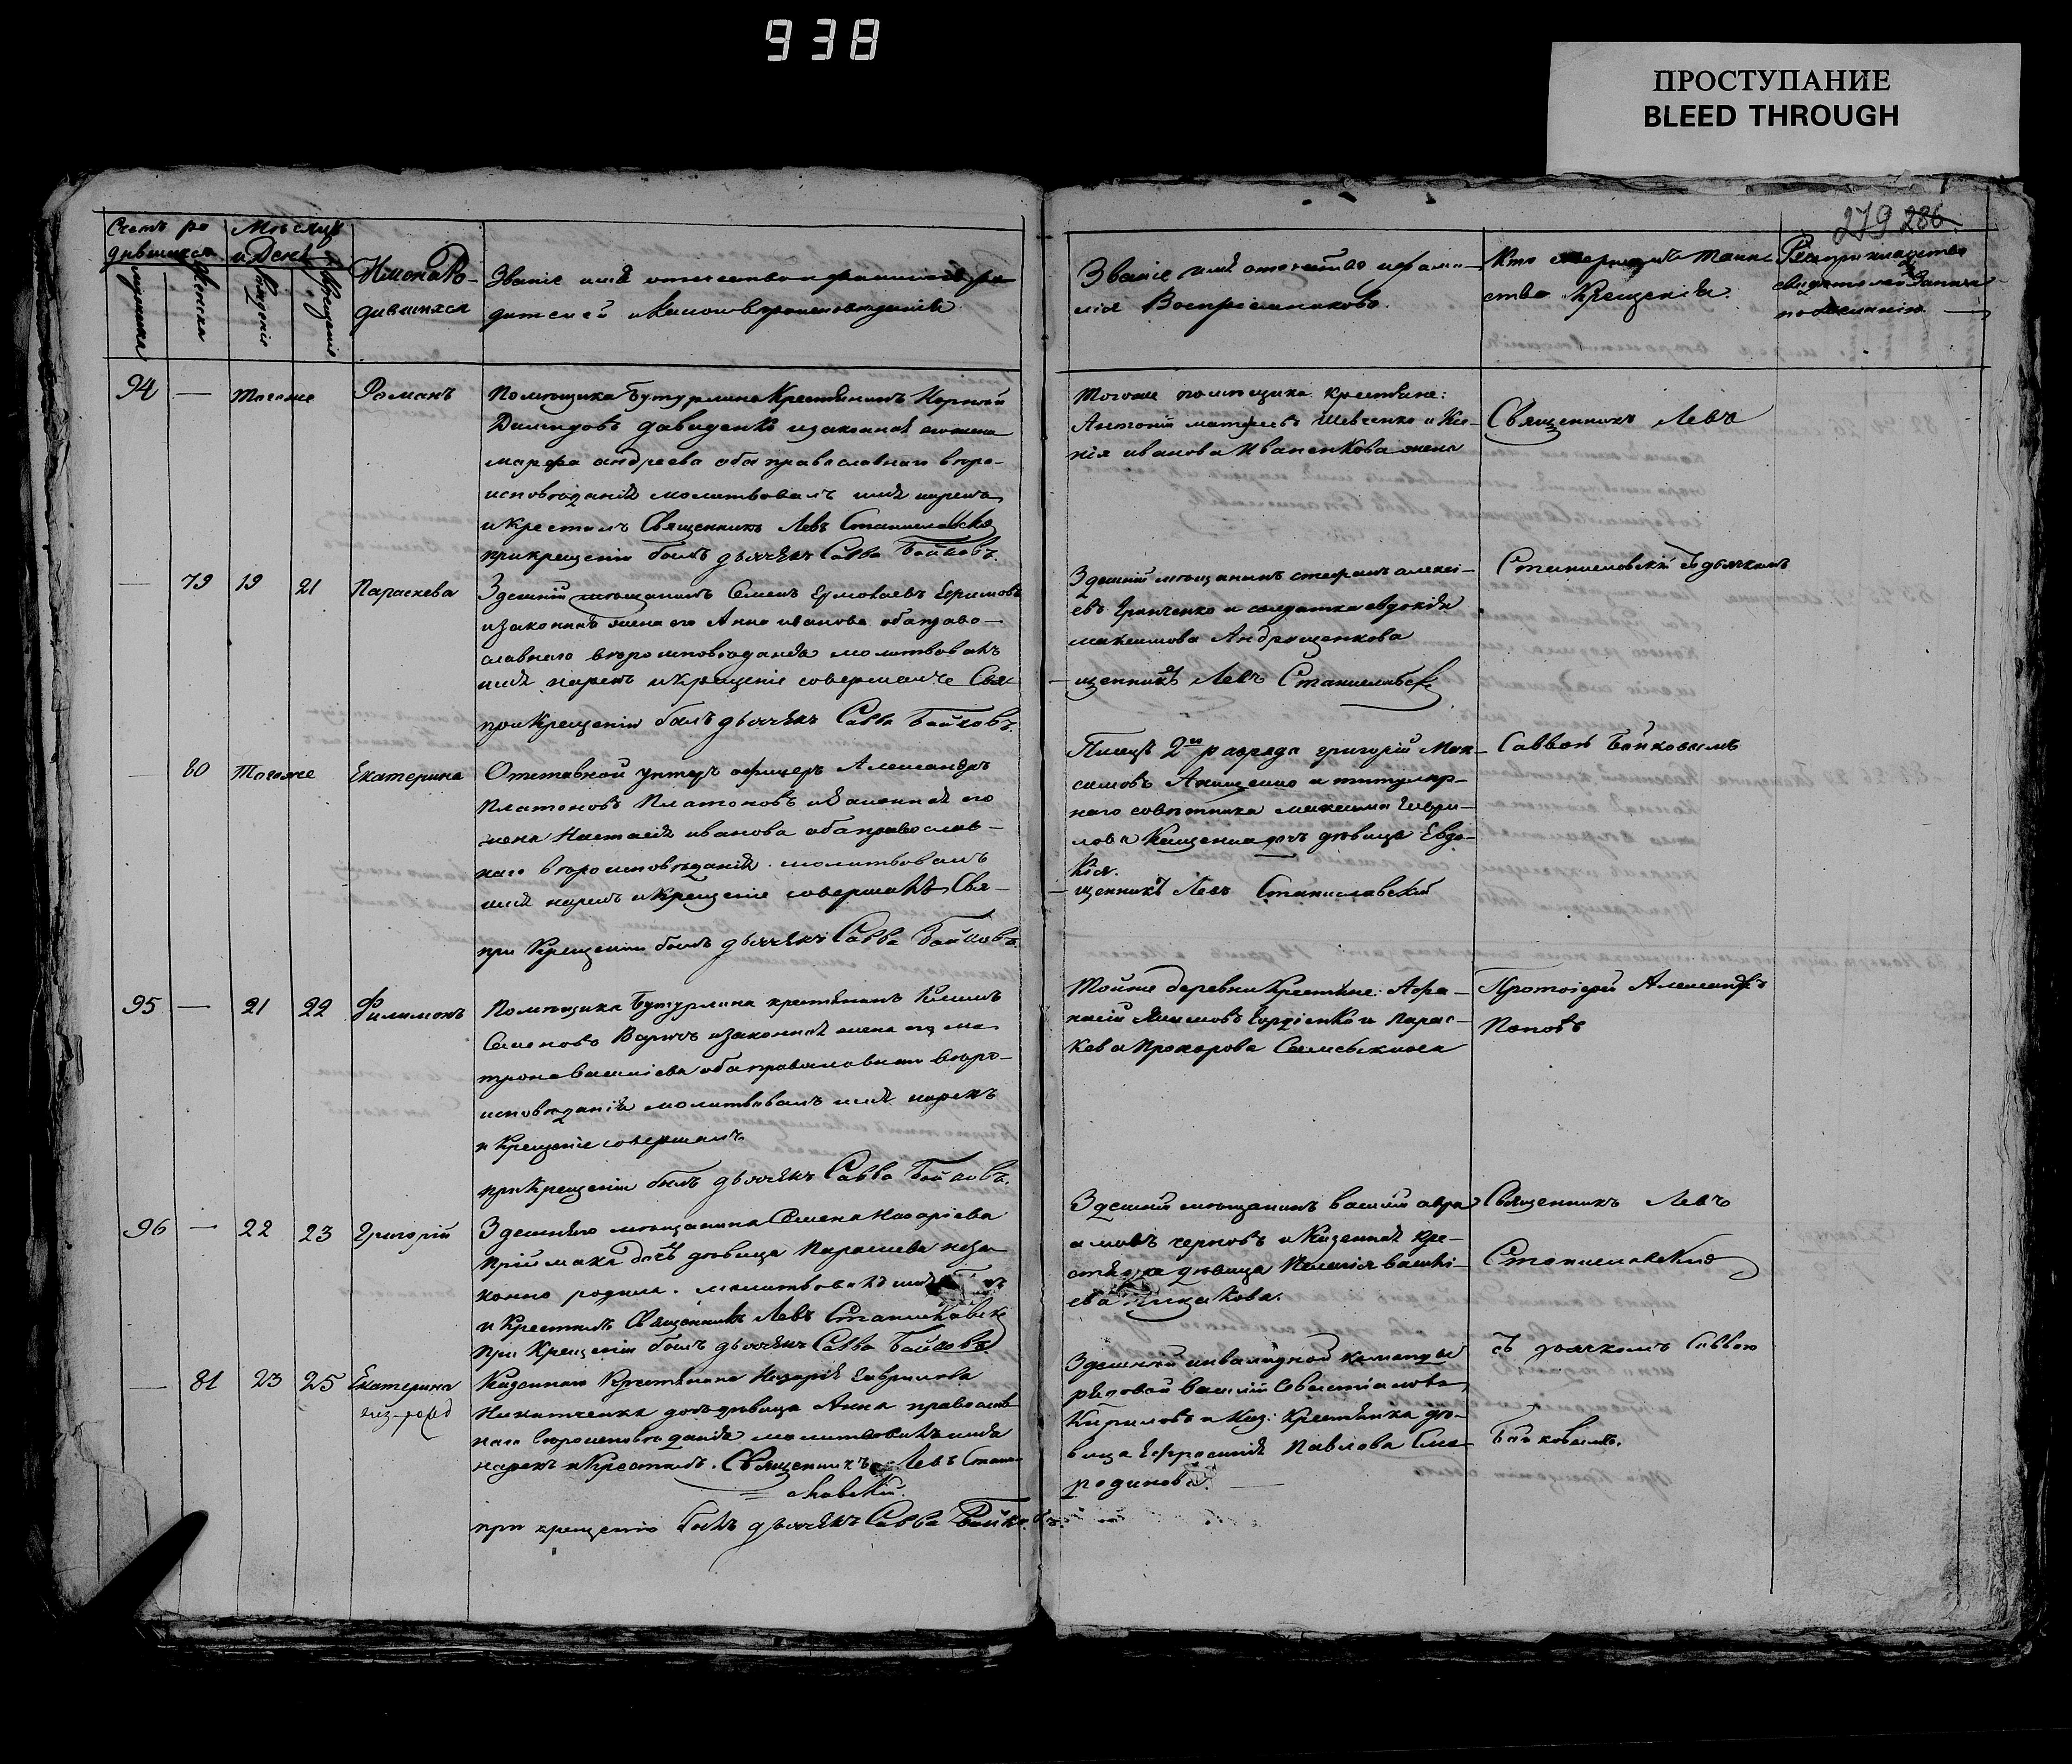 938
ПРОСТУПАНИЕ
BLEED THROUGH
279 286
Счетъ ро
дившихся
Мѣсяцъ
и День
мужеска
женска
рожденіе
крещеніе
Имена Ро-
дившихся
Званіе имя отчество и фамилія ро
дителей и какого вѣроисповѣданія
Званіе имя отчество и фами-
лія Воспріемниковъ
Кто совершалъ таин-
ство Крещенія.
Рукоприкладство
свидѣтелей записи
по желанію
94 — Тогоже Романъ
Помѣщика Бутурлина Крестьянинъ Корній
Давыденко и законная его жена
марфа андреева оба православнаго вѣро-
исповѣданія молитвовалъ имя нарекъ
и крестилъ Священникъ Левъ Станиславскій
при крещеніи былъ дьячекъ Савва Байковъ.
Тогоже помѣщика крестьяне:
Антоній матфеевъ Шевченко и Ксе-
нія иванова Иваненкова жена
Священникъ Левъ
— 79 19 21 Параскева
Здешній мѣщанинъ Семенъ Ермолаевъ Ефимовъ
и законная жена его Анна иванова оба право-
славнаго вѣроисповѣданія молитвовалъ
имя нарекъ и крещеніе совершалъ Свя-
при Крещеніи былъ дьячекъ Савва Байковъ.
Здешній мѣщанинъ стефанъ алексі-
евъ Гринченко и солдатка евдокія
максимова Андрющенкова
щенникъ Левъ Станиславскій
Станиславскій съ дьячкомъ
— 80 Тогоже Екатерина
Отставной унтеръ офицеръ Александръ
Платоновъ Платоновъ и законная его
жена Настасія иванова оба православ-
наго вѣроисповѣданія молитвовалъ
имя нарекъ и Крещеніе совершалъ Свя-
при Крещеніи былъ дьячекъ Савва Байковъ.
Писецъ 2го разряда григорій Мак-
симовъ и титуляр-
наго совѣтника максима Гаври-
лова дочь дѣвица Евдо-
кія.
щенникъ Левъ Станиславскій
Саввою Байковымъ
95 — 21 22 Филимонъ
Помѣщика Бутурлина крестьянинъ Климъ
Семеновъ и законная жена его ма-
трона василіева оба православнаго вѣро-
исповѣданія молитвовалъ имя нарекъ
и Крещеніе совершалъ
при Крещеніи былъ дьячекъ Савва Байковъ.
Тойже деревни Крестьяне: Афа-
насій Гордіенко и Парас-
кева Прохорова
Протоіерей Александръ
Поповъ
96 — 22 23 Григорій
Здешняго мѣщанина Семена Назаріева
Приймака дочь дѣвица Параскева неза-
конно родила. молитвовалъ имя
и Крестилъ Священникъ Левъ Станиславскій
При Крещеніи былъ дьячекъ Савва Байковъ
Здешній мѣщанинъ василій авра-
амовъ черновъ и Казенная кре-
стьянка дѣвица василі-
ева
Священникъ Левъ
Станиславскій
— 81 23 25 Екатерина
Казеннаго Крестьянина Назарія Гаврилова
Никитченка дочь дѣвица Анна православ-
наго вѣроисповѣданія молитвовалъ имя
нарекъ и Крестилъ. Священникъ Левъ Стани-
славскій.
при крещеніи былъ дьячекъ Савва Байковъ.
Здешней инвалидной команды
рядовой василій Севастіановъ
Кириловъ и Каз: Крестьянка дѣ-
вица Ефросинія Павлова Смо-
родинова.
съ дьячкомъ Саввою
Байковымъ.